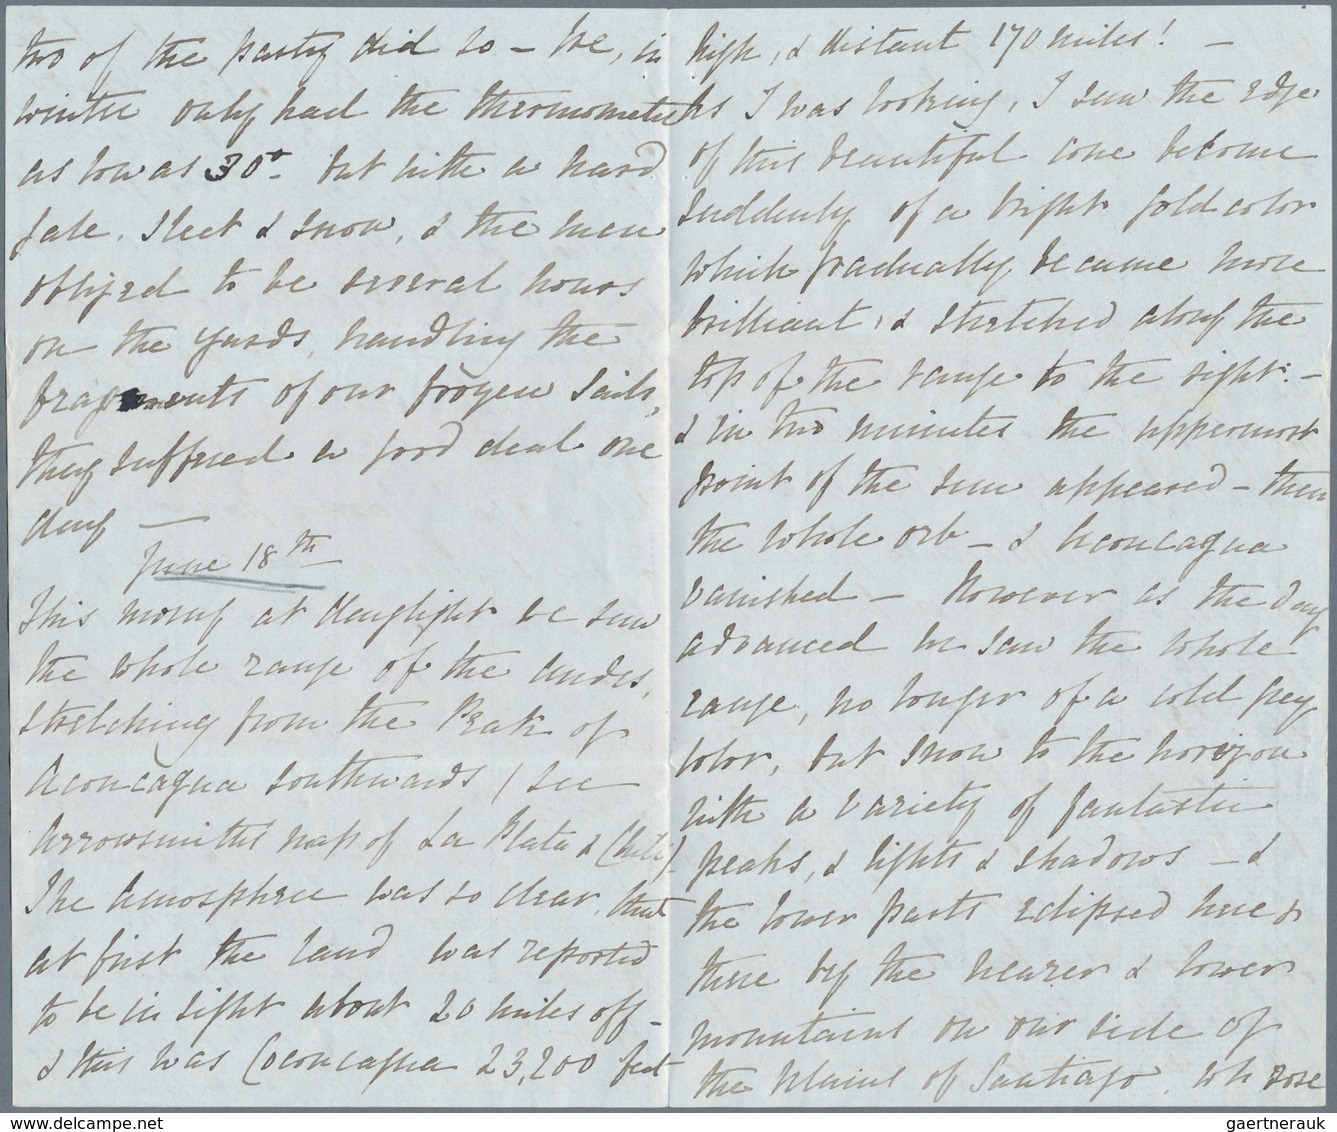 two of the party did so – We, in
winter only had the thermometer
as low as 30° – but with a hard
gale, sleet & snow, & the men
obliged to be several hours
on the yards, handling the
fragments of our frozen sails,
they suffered a good deal one
day —
June 18th
This morng at daylight we saw
the whole range of the Andes,
stretching from the Peak of
Aconcagua southwards (see
Arrowsmith's map of La Plata & Chili).
The atmosphere was so clear, that
at first the land was reported
to be in sight about 20 miles off –
& this was Aconcagua 23,200 feet
high, & distant 170 miles! –
As I was looking, I saw the edge
of this beautiful cone become
suddenly of a bright gold color
which gradually became more
brilliant, & stretched along the
top of the range to the right: –
& in two minutes the uppermost
point of the sun appeared – then
the whole orb – & Aconcagua
vanished – However as the day
advanced we saw the whole
range, no longer of a cold grey
color, but snow to the horizon
with a variety of fantastic
peaks, & lights & shadows – &
the lower parts eclipsed here &
there by the nearer & lower
mountains on our side of
the plains of Santiago, wh rose
gaertnerauk